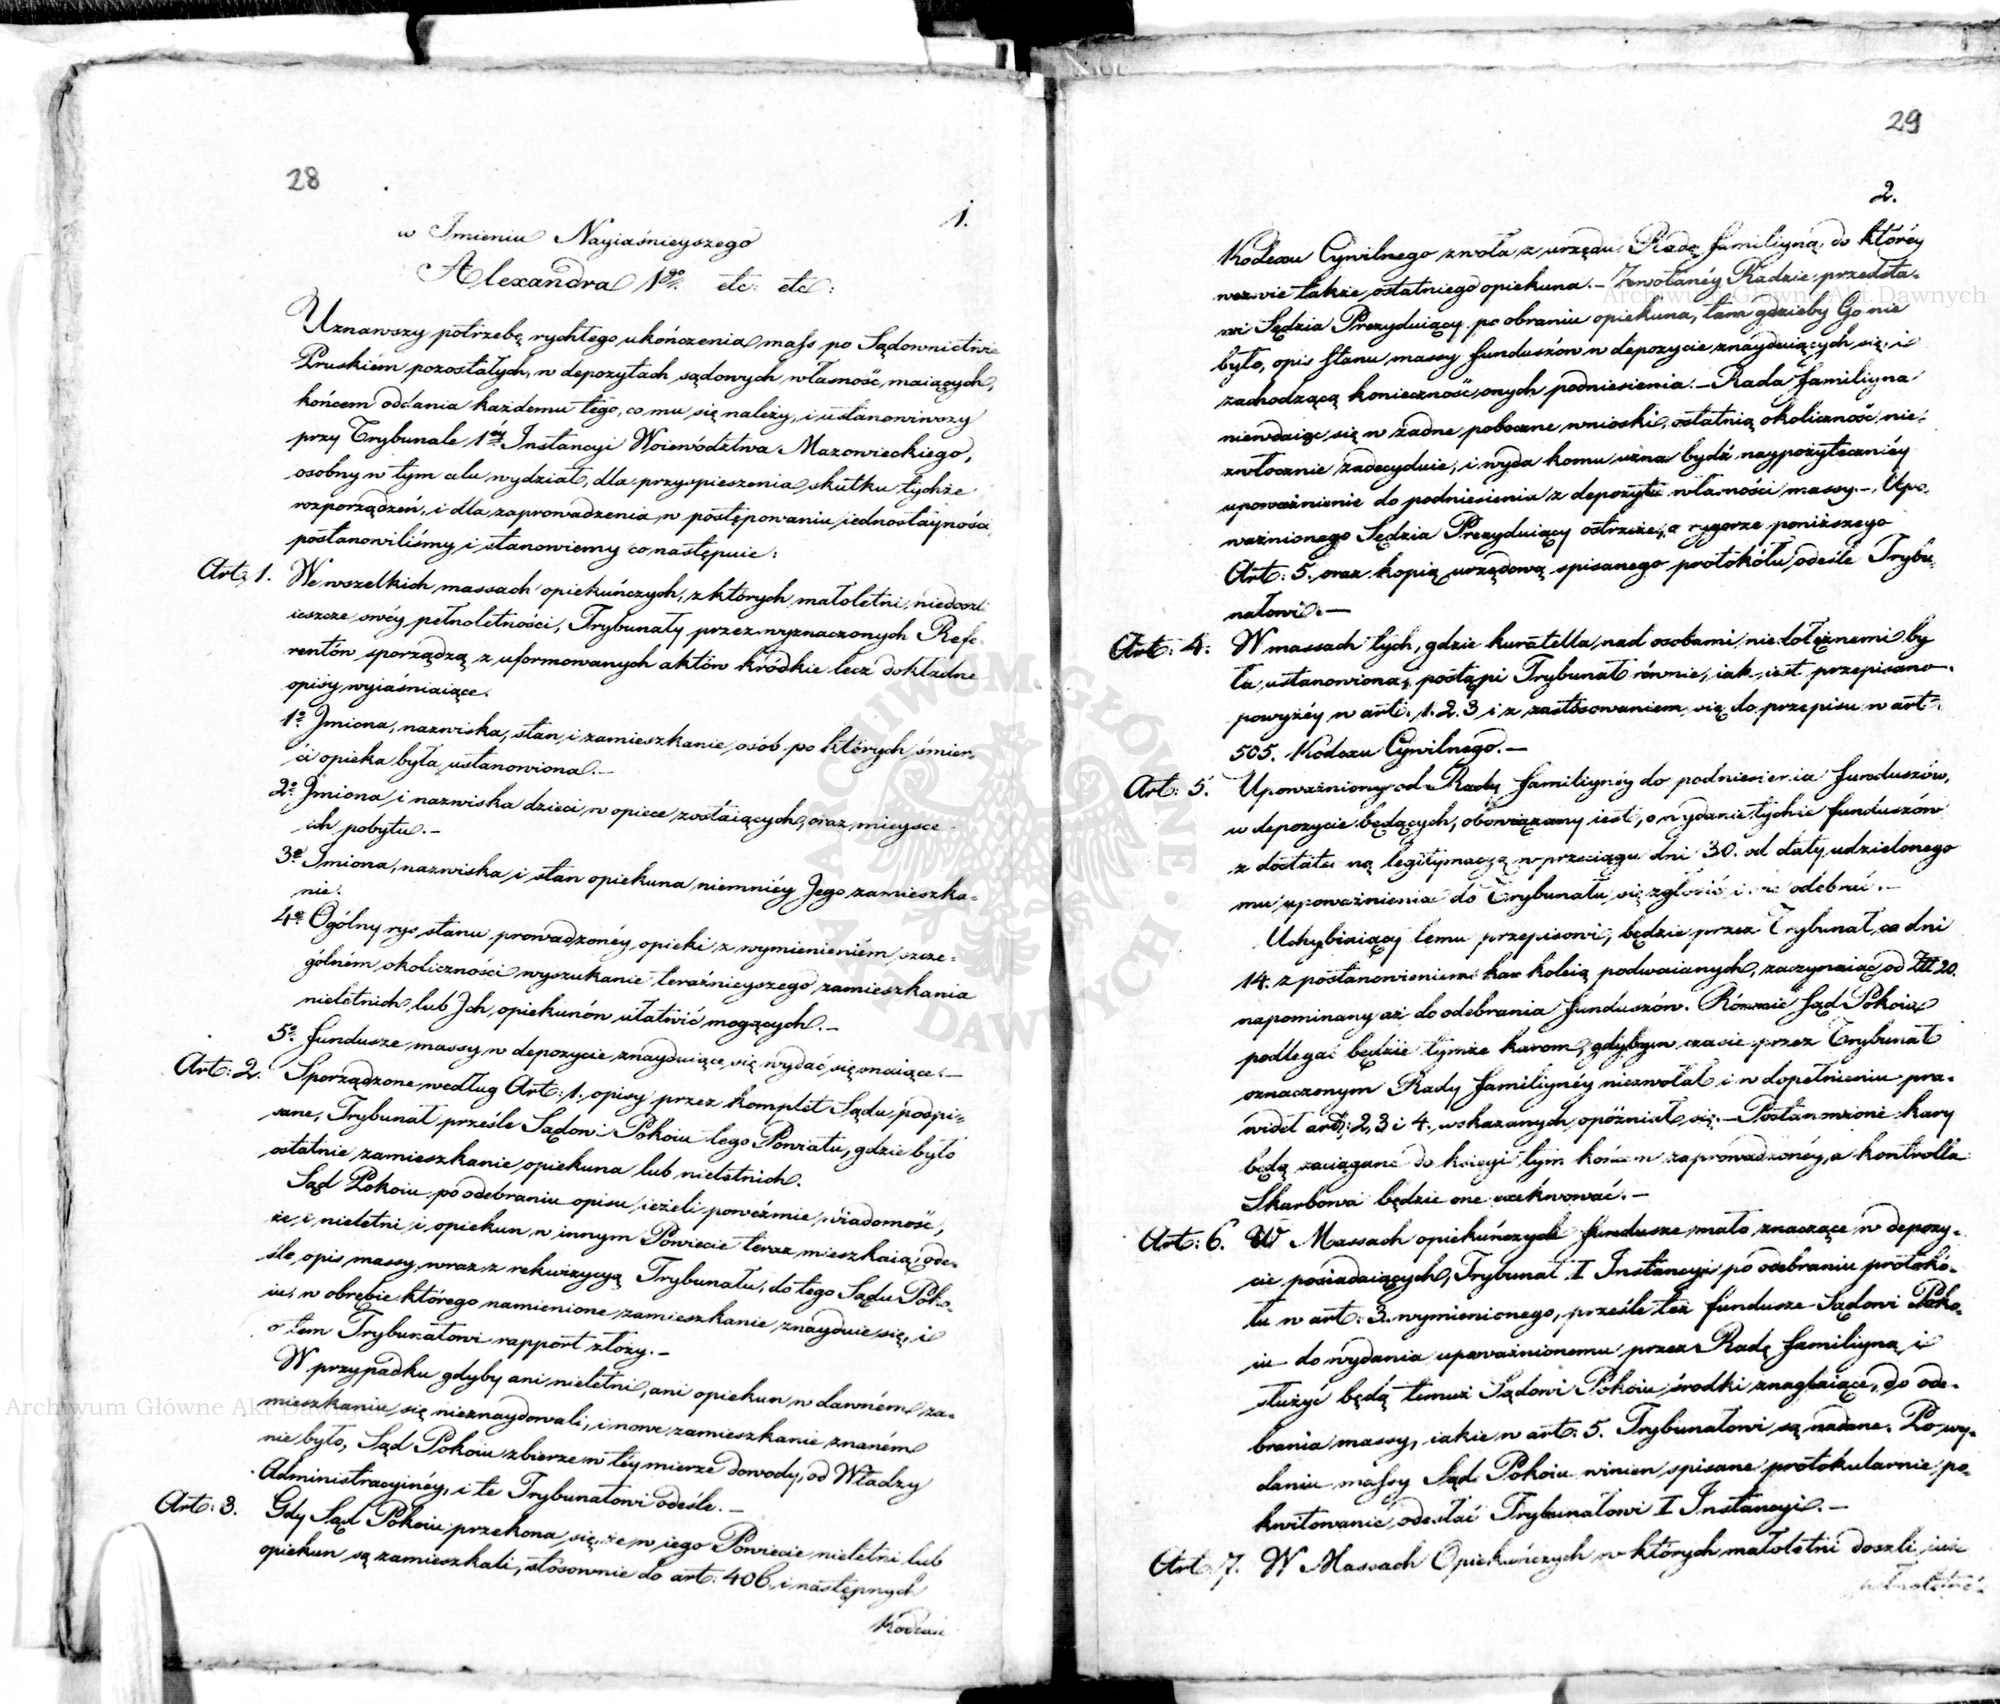 28
1.
w Imieniu Nayiaśnieyszego
Alexandra 1go etc: etc:
Uznawszy potrzebę rychłego ukończenia mass po Sądownictwie
Pruskiém pozostałych, w depozytach sądowych własność maiących,
końcem oddania każdemu tego, co mu się należy, i ustanowiwszy
przy Trybunale 1éy Instancyi Woiewództwa Mazowieckiego,
osobny w tym celu wydział, dla przyspieszenia skutku tychże
rozporządzeń, i dla zaprowadzenia w postępowaniu iednostayności
postanowiliśmy i stanowiemy co następuie:
Art: 1. We wszelkich massach opiekuńczych, z których małoletni niedoszli
ieszcze swéy pełnoletności, Trybunały przez wyznaczonych Refe-
rentów sporządzą z uformowanych aktów krótkie lecz dokładne
opisy wyiaśniaiące.
1o Imiona, nazwiska, stan i zamieszkanie osób po których śmier-
ci opieka była ustanowiona.–
2o Imiona i nazwiska dzieci w opiece zostaiących, oraz mieysce
ich pobytu.–
3o Imiona, nazwiska i stan opiekuna niemniéy Jego zamieszka-
nie.
4o Ogólny rys stanu prowadzonéy opieki z wymienieniém szcze-
gólném okoliczności wyszukanie teraźnieyszego zamieszkania
nieletnich lub Ich opiekunów ułatwić mogących.–
5o fundusze massy w depozycie znayduiące się wydać się maiące.–
Art: 2. Sporządzone według Art: 1. opisy przez komplet Sądu podpi-
sane, Trybunał prześle Sądowi Pokoiu tego Powiatu, gdzie było
ostatnie zamieszkanie opiekuna lub nieletnich.
Sąd Pokoiu po odebraniu opisu ieżeli poweźmie wiadomość,
że i nieletni i opiekun w innym Powiecie teraz mieszkaią, ode-
śle opis massy wraz z rekwizycyą Trybunału, do tego Sądu Poko-
iu, w obrębie którego namienione zamieszkanie znayduie się, i
o tem Trybunałowi rapport złoży.–
W przypadku gdyby ani nieletni, ani opiekun w dawném za-
mieszkaniu się nieznaydowali, i nowe zamieszkanie znaném
nie było, Sąd Pokoiu zbierze w téy mierze dowody, od Władzy
Administracyinéy, i te Trybunałowi odeśle.–
Art: 3. Gdy Sąd Pokoiu przekona się, że w iego Powiecie nieletni lub
opiekun są zamieszkali, stosownie do art: 406 i następnych
Kodexu
29
2.
Kodexu Cywilnego zwoła z urzędu Radę familiyną, do któréy
wezwie także ostatniego opiekuna.– Zwołanéy Radzie przedsta-
wi Sędzia Prezyduiący po obraniu opiekuna, tam gdzieby Go nie
było, opis stanu massy funduszów w depozycie znayduiących się, i
zachodzącą konieczność onych podniesienia.– Rada familiyna
niewdaiąc się w żadne poboczne wnioski, ostatnią okoliczność nie-
zwłocznie zadecyduie, i wyda komu uzna bydź naypożyteczniéy
upoważnienie do podniesienia z depozytu własności massy.– Upo-
ważnionego Sędzia Prezyduiący ostrzeże, o rygorze poniższego
Art: 5. oraz kopią urzędową spisanego protokółu odeśle Trybu-
nałowi.–
Art: 4. W massach tych, gdzie kuratella nad osobami niedołężnemi by
ła ustanowiona, postąpi Trybunał równie, iak iest przepisano
powyżéy w art: 1. 2. 3 i z zastosowaniem się do przepisu w art:
505. Kodexu Cywilnego.–
Art: 5. Upoważniony od Rady familiynéy do podniesienia funduszów,
w depozycie będących, obowiązany iest, o wydanie tychże funduszów
z dostateczną legitymacyą w przeciągu dni 30. od daty udzielonego
mu upoważnienia do Trybunału się zgłosić i odebrać.–
Uchybiaiący temu przepisowi, będzie przez Trybunał, co dni
14. z postanowieniem kar koleią podwaianych, zaczynaiąc od 20.
napominany aż do odebrania funduszów. Równie Sąd Pokoiu
podlegać będzie tymże karom, gdyby w czasie przez Trybunał
oznaczonym Rady familiynéy niezwołał i w dopełnieniu pra-
wideł art: 2, 3 i 4. wskazanych opóźniał się.– Postanowione kary
będą zaciągane do księgi tym końcem zaprowadzonéy, a kontrolla
Skarbowa będzie one exekwować.–
Art: 6. W Massach opiekuńczych fundusze mało znaczące w depozy-
cie posiadaiących, Trybunał I Instancyi po odebraniu protokó-
łu w art: 3. wymienionego, prześle też fundusze Sądowi Poko-
iu do wydania upoważnionemu przez Radę familiyną i
służyć będą temuż Sądowi Pokoiu środki znaglaiące, do ode-
brania massy, iakie w art: 5. Trybunałowi są nadane. Po wy-
daniu massy Sąd Pokoiu winien spisane protokularnie po-
kwitowanie odesłać Trybunałowi I Instancyi.–
Art: 7. W Massach Opiekuńczych w których małoletni doszli iuż
pełnoletności
Archiwum Główne Akt Dawnych
Archiwum Główne Akt Dawnych
ARCHIWUM GŁÓWNE AKT DAWNYCH